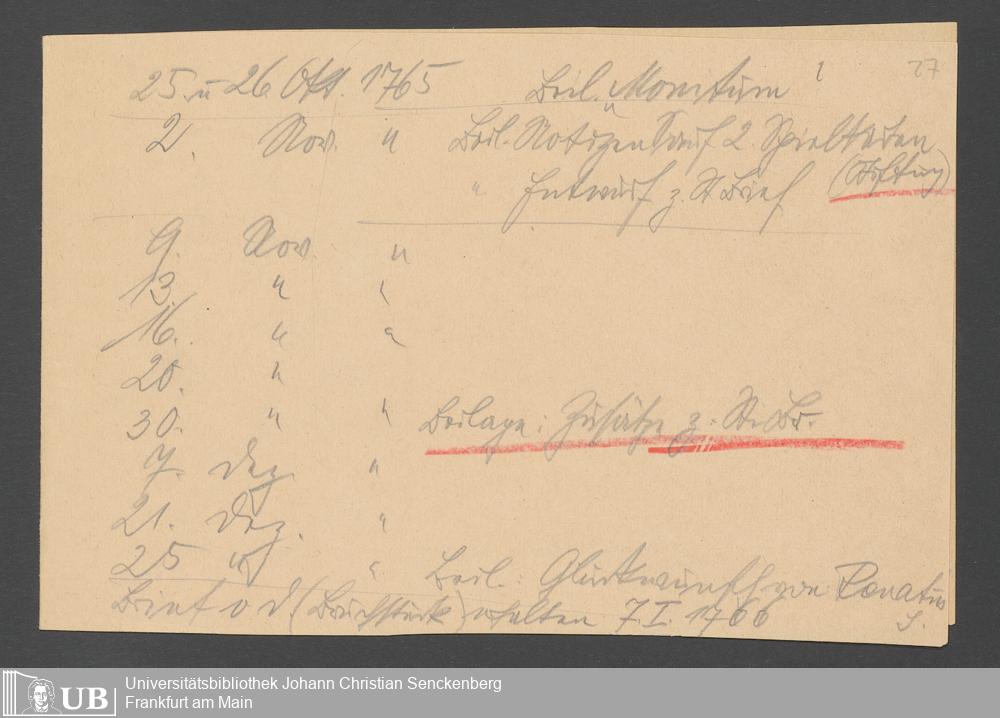 27
25. u 26. Okt. 1765 Beil. Monitum
2. Nov. " Beil. Notizen auf 2. Spielkarten
" Entwurf z. St Brief (Stiftung)
9. Nov. "
13. " "
16. " "
20. "
30. " " Beilage: Zusätze z. St. Br.
7. Dez. "
21. Dez. "
25 " " Beil.: Glückwunsch von Renatus
Brief o d (Bruchstück) erhalten 7.I.1766 S.
UB Universitätsbibliothek Johann Christian Senckenberg
Frankfurt am Main